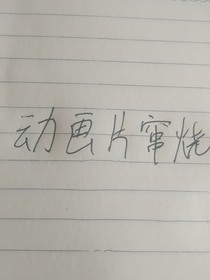 动画片窜烧